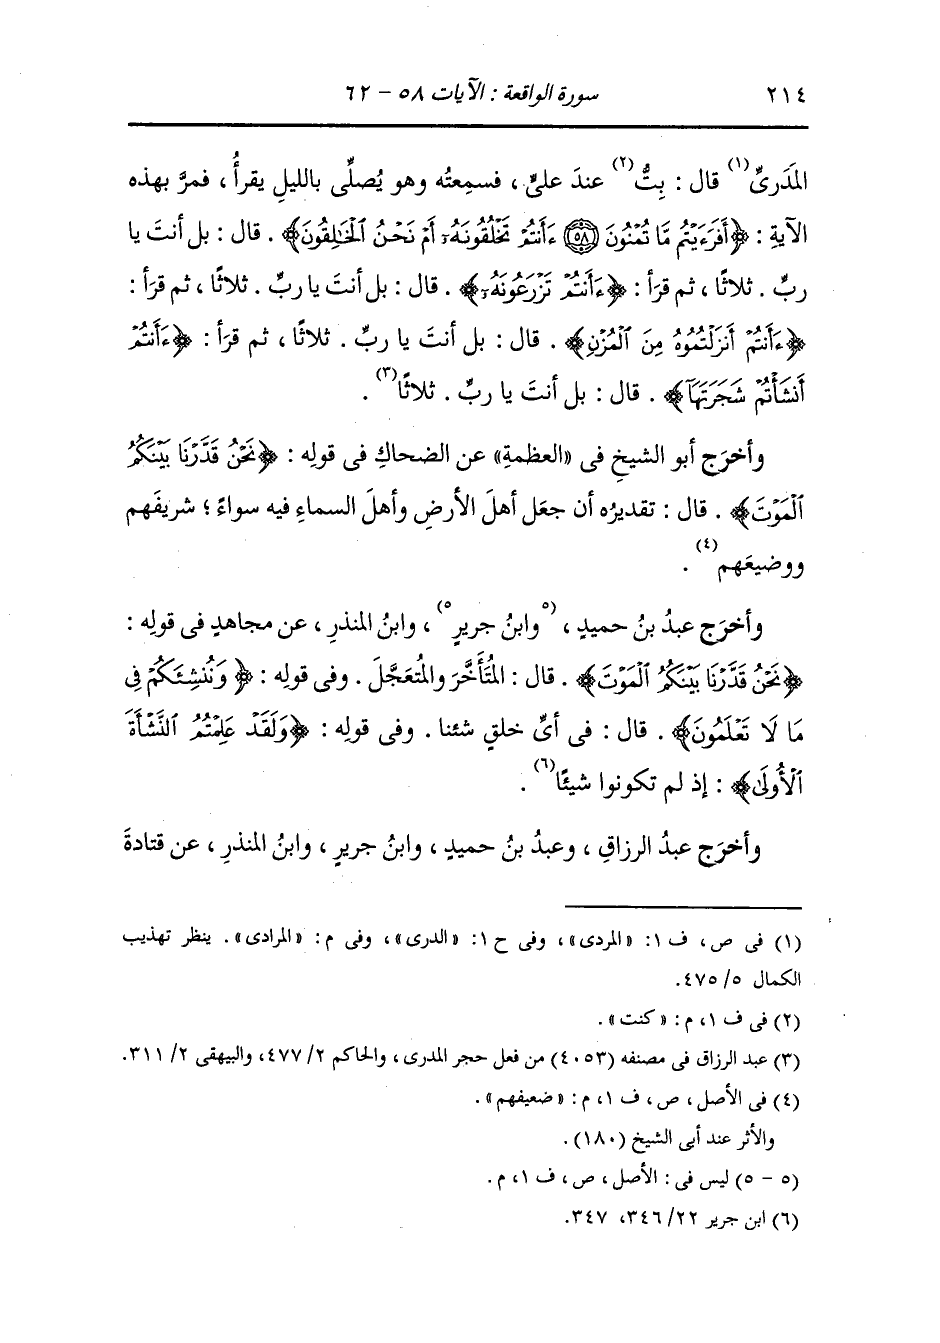 ٢١٤ سورة الواقعة : الآيات ٥٨ - ٦٢
المَدَرىِّ(١) قال : بِتُّ(٢) عندَ علىٍّ ، فسمِعتُه وهو يُصلِّى بالليلِ يقرأُ ، فمرَّ بهذه
الآيةِ : ﴿أَفَرَءَيْتُم مَّا تُمْنُونَ ﴿٥٨﴾ ءَأَنتُمْ تَخْلُقُونَهُۥٓ أَمْ نَحْنُ ٱلْخَٰلِقُونَ﴾ . قال : بل أنتَ يا
ربِّ . ثلاثًا ، ثم قرَأ : ﴿ءَأَنتُمْ تَزْرَعُونَهُۥٓ﴾ . قال : بل أنتَ يا ربِّ . ثلاثًا ، ثم قرَأ :
﴿ءَأَنتُمْ أَنزَلْتُمُوهُ مِنَ ٱلْمُزْنِ﴾ . قال : بل أنتَ يا ربِّ . ثلاثًا ، ثم قرَأ : ﴿ءَأَنتُمْ
أَنشَأْتُمْ شَجَرَتَهَآ﴾ . قال : بل أنتَ يا ربِّ . ثلاثًا(٣) .
وأخرَج أبو الشيخِ فى «العظمةِ» عن الضحاكِ فى قولِه : ﴿نَحْنُ قَدَّرْنَا بَيْنَكُمُ
ٱلْمَوْتَ﴾ . قال : تقديرُه أن جعَل أهلَ الأرضِ وأهلَ السماءِ فيه سواءً ؛ شريفَهم
ووضيعَهم(٤) .
وأخرَج عبدُ بنُ حميدٍ ، (٥وابنُ جريرٍ٥) ، وابنُ المنذرِ ، عن مجاهدٍ فى قولِه :
﴿نَحْنُ قَدَّرْنَا بَيْنَكُمُ ٱلْمَوْتَ﴾ . قال : المُتَأَخَّرَ والمُتَعَجَّلَ . وفى قولِه : ﴿وَنُنشِئَكُمْ فِى
مَا لَا تَعْلَمُونَ﴾ . قال : فى أىِّ خلقٍ شئنا . وفى قولِه : ﴿وَلَقَدْ عَلِمْتُمُ ٱلنَّشْأَةَ
ٱلْأُولَىٰ﴾ : إذ لم تكونوا شيئًا(٦) .
وأخرَج عبدُ الرزاقِ ، وعبدُ بنُ حميدٍ ، وابنُ جريرٍ ، وابنُ المنذرِ ، عن قتادةَ
(١) فى ص، ف ١: «المردى»، وفى ح ١: «الدرى»، وفى م: «المرادى». ينظر تهذيب
الكمال ٥/ ٤٧٥.
(٢) فى ف ١، م : «كنت» .
(٣) عبد الرزاق فى مصنفه (٤٠٥٣) من فعل حجر المدرى، والحاكم ٢/ ٤٧٧، والبيهقى ٢/ ٣١١.
(٤) فى الأصل، ص، ف ١، م : «ضعيفهم» .
والأثر عند أبى الشيخ (١٨٠).
(٥ - ٥) ليس فى : الأصل، ص، ف ١، م.
(٦) ابن جرير ٢٢/ ٣٤٦، ٣٤٧.